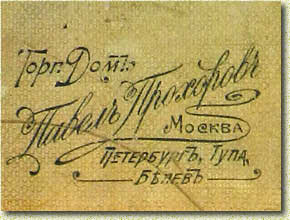 Торг. Домъ
Павелъ Прохоровъ
Москва
Петербургъ, Тула,
Бѣлевъ